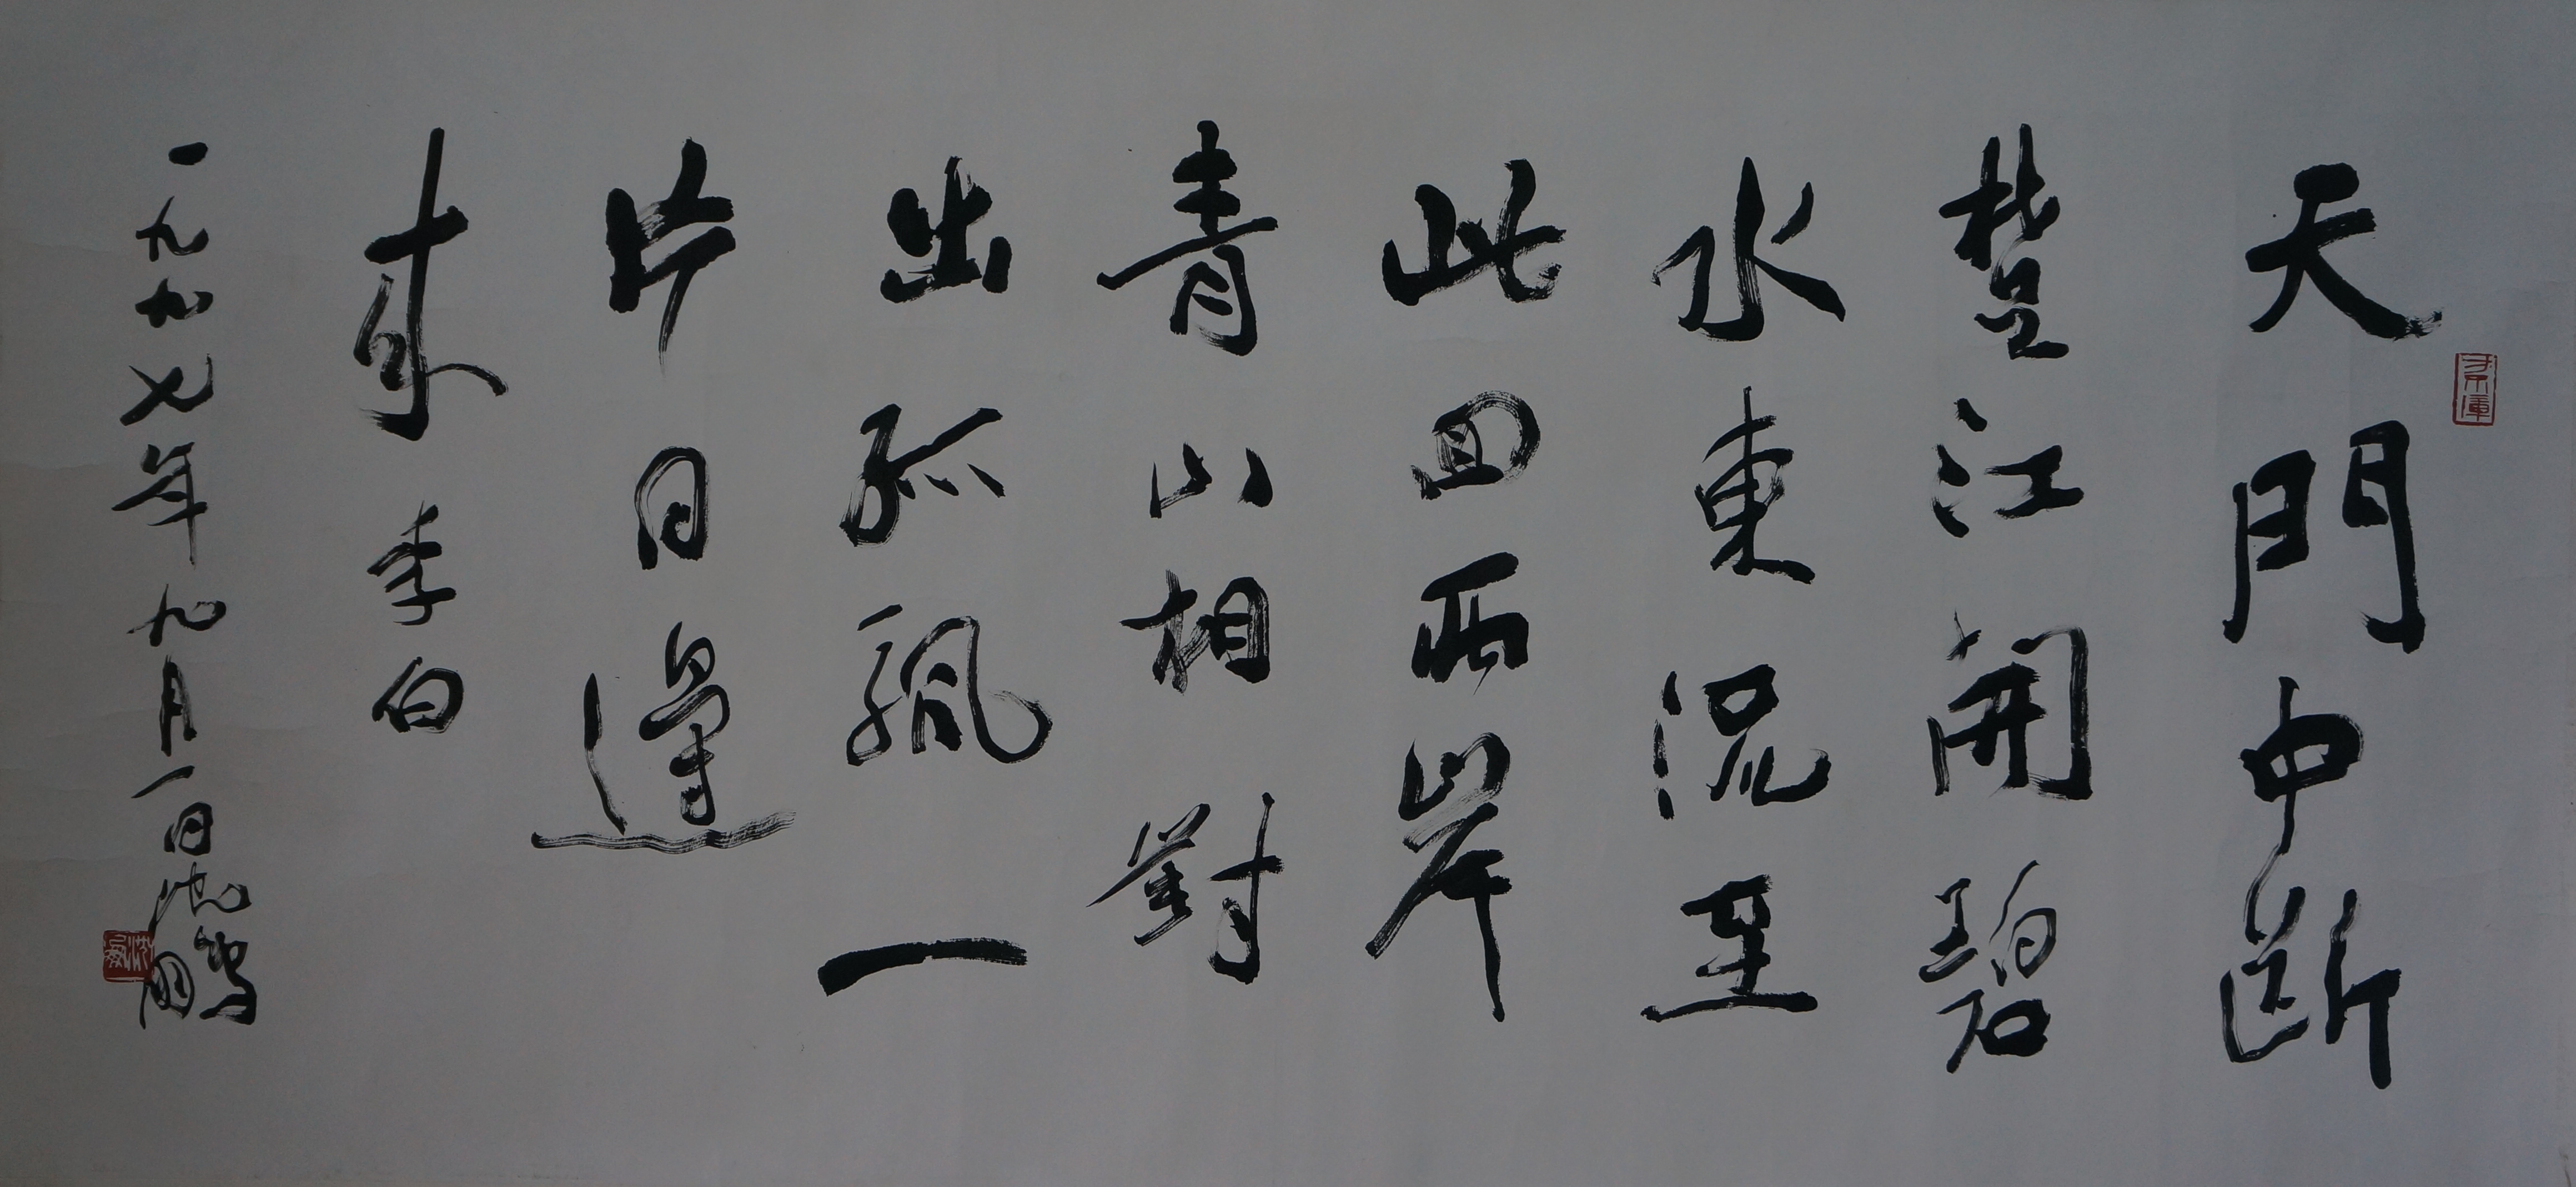 天門中斷
楚江開碧
水東流至
此回兩岸
青山相對
出孤颿一
片日邊
來 李白
一九九七年九月一日沈鵬
沈鵬